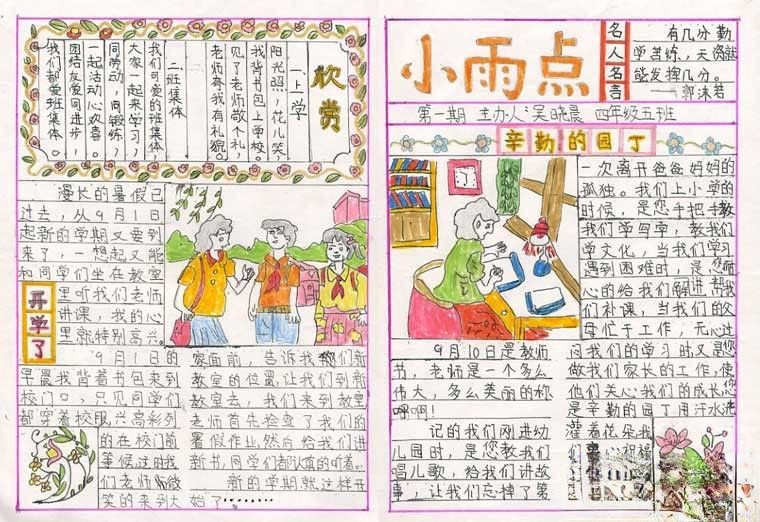 欣赏
一、上学
阳光照,花儿笑,
我背书包上学校。
见了老师敬个礼,
老师夸我有礼貌。
二、班集体
我们可爱的班集体,
大家一起来学习,
同劳动,同锻练,
一起活动心欢喜。
团结友爱同进步,
我们都爱班集体。
开学了
漫长的暑假已
过去,从9月1日
起新的学期又要到
来了,一想起又能
和同学们坐在教室
里听我们老师
讲课,我的心
里就特别高兴。
9月1日的
早晨我背着书包来到
校门口,只见同学们
都穿着校服,兴高彩列
的在校门前
等候,这时我
们老师微
笑的来到大
家面前,告诉我们新
教室的位置,让我们到新
教室去,我们来到教室
老师首先检查了我们的
暑假作业,然后给我们讲
新书,同学们都认真的听着。
新的学期就这样开
始了………
小雨点
名人名言
有几分勤
学苦练,天资就
能发挥几分。
——郭沫若
第一期 主办人:吴晓晨 四年级五班
辛勤的园丁
9月10日是教师
节,老师是一个多么
伟大,多么美丽的称
呼啊!
记的我们刚进幼
儿园时,是您教我们
唱儿歌,给我们讲故
事,让我们忘掉了第
一次离开爸爸妈妈的
孤独。我们上小学的
时候,是您手把手教
我们学写字,教我们
学文化,当我们学习
遇到困难时,是您耐
心的给我们解讲帮我
们补课,当我们的父
母忙于工作,无心过
问我们的学习时又是您
做我们家长的工作,使
他们关心我们的成长您
是辛勤的园丁用汗水浇
灌着花朵我